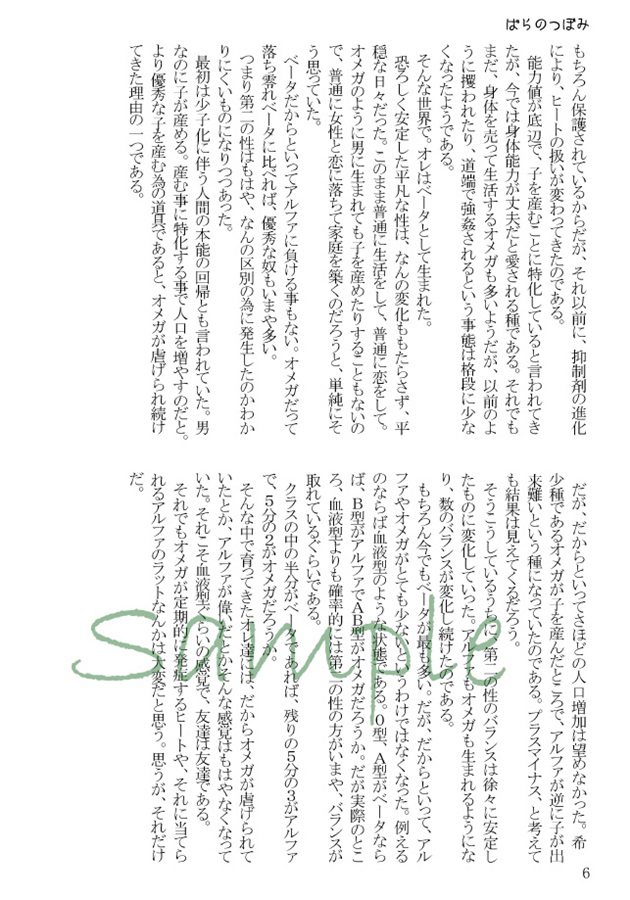 ばらのつぼみ
もちろん保護されているからだが、それ以前に、抑制剤の進化
により、ヒートの扱いが変わってきたのである。
能力値が底辺で、子を産むことに特化していると言われてき
たが、今では身体能力が丈夫だと愛される種である。それでも
まだ、身体を売って生活するオメガも多いようだが、以前のよ
うに攫われたり、道端で強姦されるという事態は格段に少な
くなったようである。
そんな世界で。オレはベータとして生まれた。
恐ろしく安定した平凡な性は、なんの変化ももたらさず、平
穏な日々だった。このまま普通に生活をして、普通に恋をして。
オメガのように男に生まれても子を産めたりすることもないの
で、普通に女性と恋に落ちて家庭を築くのだろうと、単純にそ
う思っていた。
ベータだからといってアルファに負ける事もない。オメガだって
落ち零れベータに比べれば、優秀な奴もいまや多い。
つまり第二の性はもはや、なんの区別の為に発生したのかわか
りにくいものになりつつあった。
最初は少子化に伴う人間の本能の回帰とも言われていた。男
なのに子が産める。産む事に特化する事で人口を増やすのだと。
より優秀な子を産む為の道具であると、オメガが虐げられ続け
てきた理由の一つである。
だが、だからといってさほどの人口増加は望めなかった。希
少種であるオメガが子を産んだところで、アルファが逆に子が出
来難いという種になっていたのである。プラスマイナス、と考えて
も結果は見えてくるだろう。
そうこうしているうちに、第二の性のバランスは徐々に安定し
たものに変化していった。アルファもオメガも生まれるようにな
り、数のバランスが変化し続けたのである。
もちろん今でもベータが最も多い。だが、だからといって、アル
ファやオメガがとても少ないというわけではなくなった。例える
のならば血液型のような状態である。O型、A型がベータなら
ば、B型がアルファでAB型がオメガだろうか。だが実際のとこ
ろ、血液型よりも確率的には第二の性の方がいまや、バランスが
取れているぐらいである。
クラスの中の半分がベータであれば、残りの5分の3がアルファ
で、5分の2がオメガだろうか。
そんな中で育ってきたオレ達には、だからオメガが虐げられて
いたとか、アルファが偉いだとかそんな感覚はもはやなくなって
いた。それこそ血液型ぐらいの感覚で、友達は友達である。
それでもオメガが定期的に発症するヒートや、それに当てら
れるアルファのラットなんかは大変だと思う。思うが、それだけ
だ。
6
sample